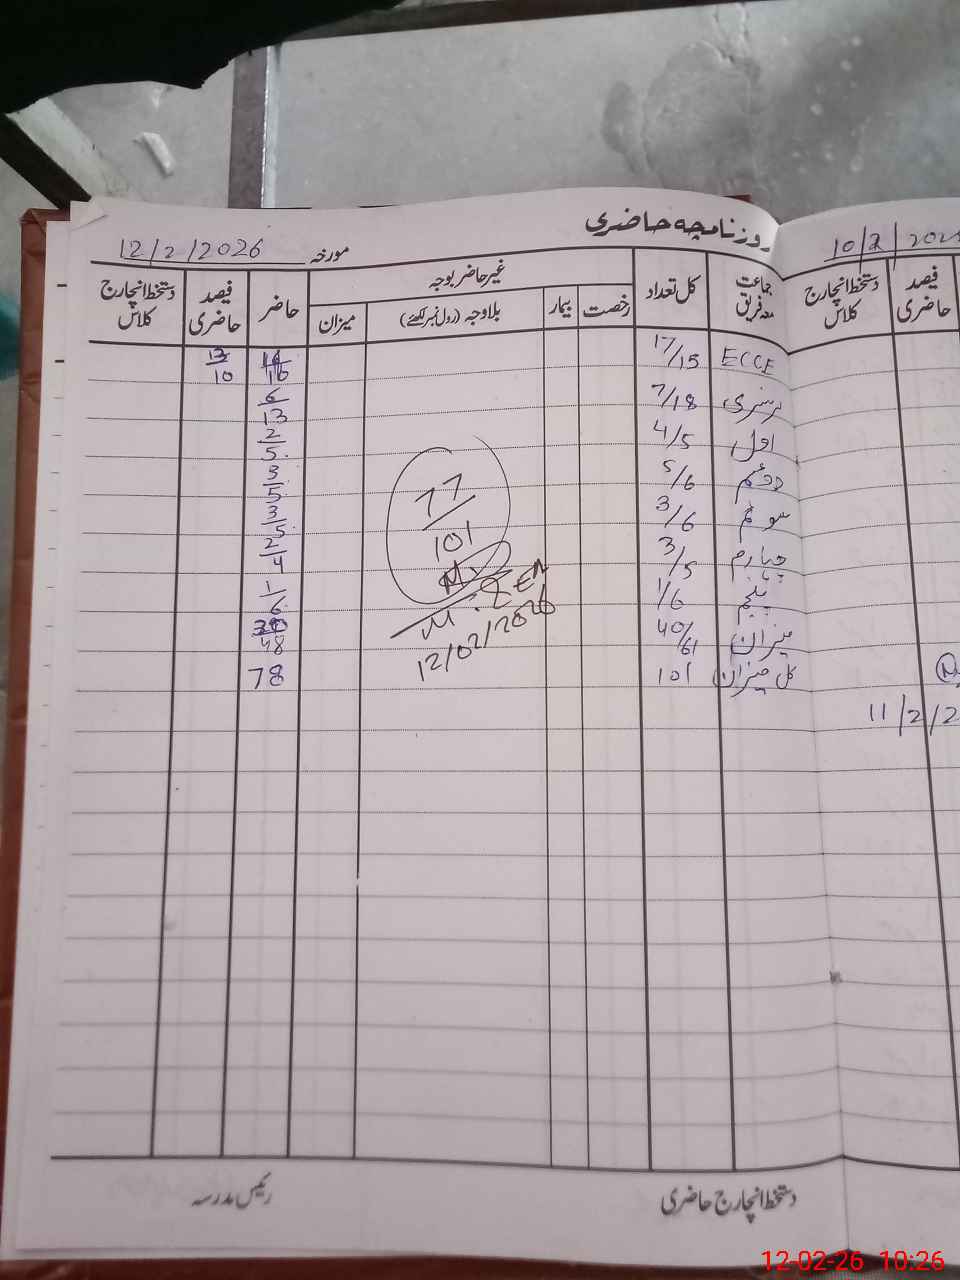 روزنامچہ حاضری
مورخہ 12/2/2026
10/2/202
جماعت معہ فریق کل تعداد غیر حاضر بوجہ حاضر فیصد حاضری دستخط انچارج کلاس
رخصت بیمار بلاوجہ (رول نمبر لکھئے) میزان
فیصد حاضری دستخط انچارج کلاس
ECCE 17/15 16/10 13/10
نرسری 7/18 6/13
اول 4/5 2/5
دوئم 5/6 3/5
سوئم 3/6 3/5
چہارم 3/5 2/4
پنجم 1/6 1/6
میزان 40/61 30/48
کل میزان 101 78
77/101
M. 8 EM
12/02/2026
11/2/2
دستخط انچارج حاضری
رئیس مدرسہ
12-02-26 10:26